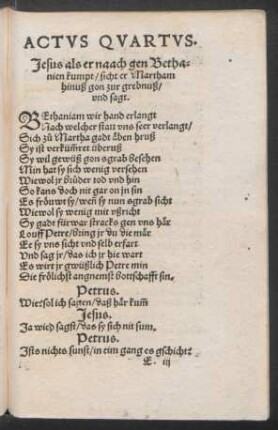 ACTVS QVARTVS.
Jesus als er naach gen Betha-
nien kumpt/ sicht er Martham
hinuß gon zur grebnuß/
vnd sagt.
BEthaniam wir hand erlangt
Nach welcher statt vns seer verlangt/
Sich zů Martha gadt åben hruß
Sy ist verkümret überuß
Sy wil gewüß gon s grab besehen
Min hat sy sich wenig versehen
Wiewol jr brůder tod vnd hin
So kans doch nit gar on jn sin
Es fröuwt sy/ weñ sy nun s grab sicht
Wiewol sy wenig mit vßricht
Sy gadt fürwar stracks gen vns här
Louff Petre/ bring jr du die mär
Ee sy vns sicht vnd selb erfart
Vnd sag jr/ das ich jr hie wart
Es wirt jr gwüßlich Petre min
Die frölichst angnemst bottschafft sin.
Petrus.
Wie? sol ich sagen/ daß här kum̃
Jesus.
Ja wied sagst/ das sy sich nit sum.
Petrus.
Ists nichts sunst/ in eim gang es gschicht?
E. iij